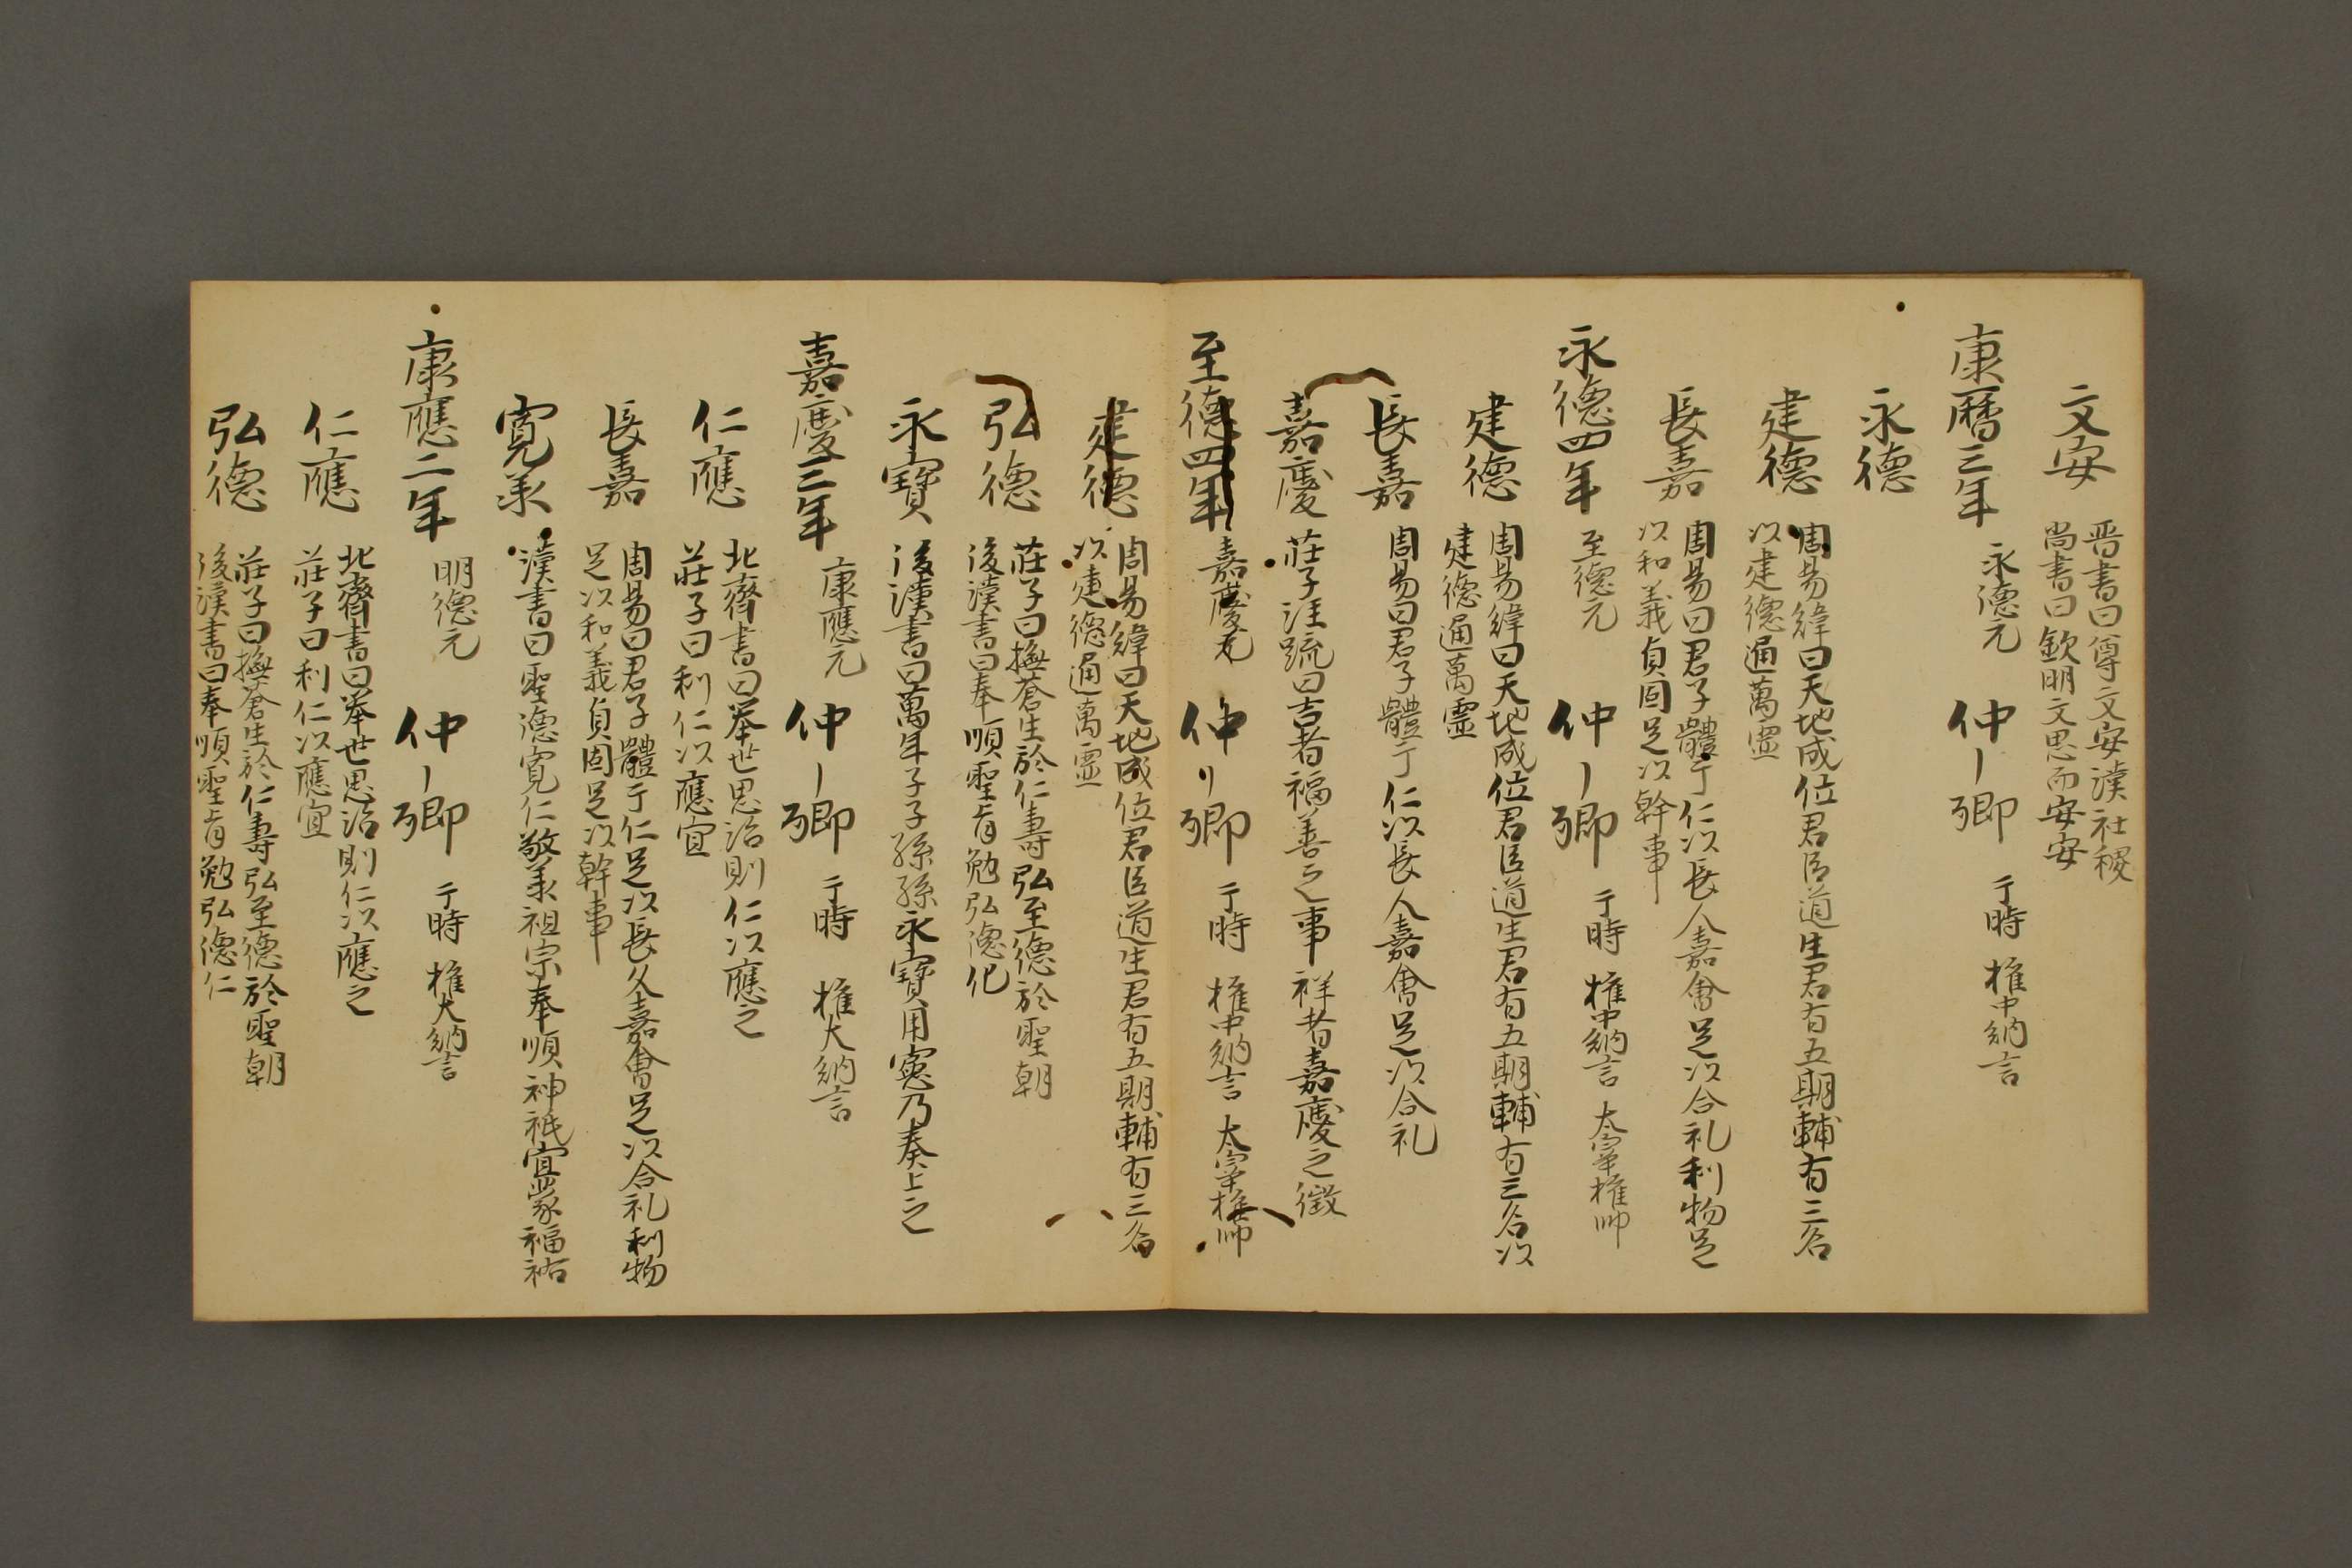 文安
晋書曰尊文安漢社稷
尚書曰欽明文思而安安
康暦三年 永德元 仲ー卿 于時 権中納言
永德
建德
周易緯曰天地成位君臣道生君有五期輔有三名
以建德通萬霊
長嘉
周易曰君子體于仁以長人嘉會足以合礼利物足
以和義貞固足以幹事
永德四年 至德元 仲ー卿 于時 権中納言 太宰権帥
建德
周易緯曰天地成位君臣道生君有五期輔有三名以
建德通萬霊
長嘉 周易曰君子體于仁以長人嘉會足以合礼
嘉慶 莊子注疏曰吉者福善之事祥者嘉慶之徴
至德四年 嘉慶元 仲〃卿 于時 権中納言 太宰権帥
建德
周易緯曰天地成位君臣道生君有五期輔有三名
以建德通萬霊
弘德
莊子曰撫蒼生於仁壽弘至德於聖朝
後漢書曰奉順聖旨勉弘德化
永寶 後漢書曰萬年子子孫孫永寶用憲乃奏上之
嘉慶三年 康應元 仲ー卿 于時 権大納言
仁應
北齊書曰挙世思治則仁以應之
莊子曰利仁以應宜
長嘉
周易曰君子體于仁足以長久嘉會足以合礼利物
足以和義貞固足以幹事
寛承 漢書曰聖德寛仁敬承祖宗奉順神祇宜蒙福祐
康應二年 明德元 仲ー卿 于時 権大納言
仁應
北齊書曰挙世思治則仁以應之
莊子曰利仁以應宜
弘德
莊子曰撫蒼生於仁壽弘至德於聖朝
後漢書曰奉順聖旨勉弘德仁